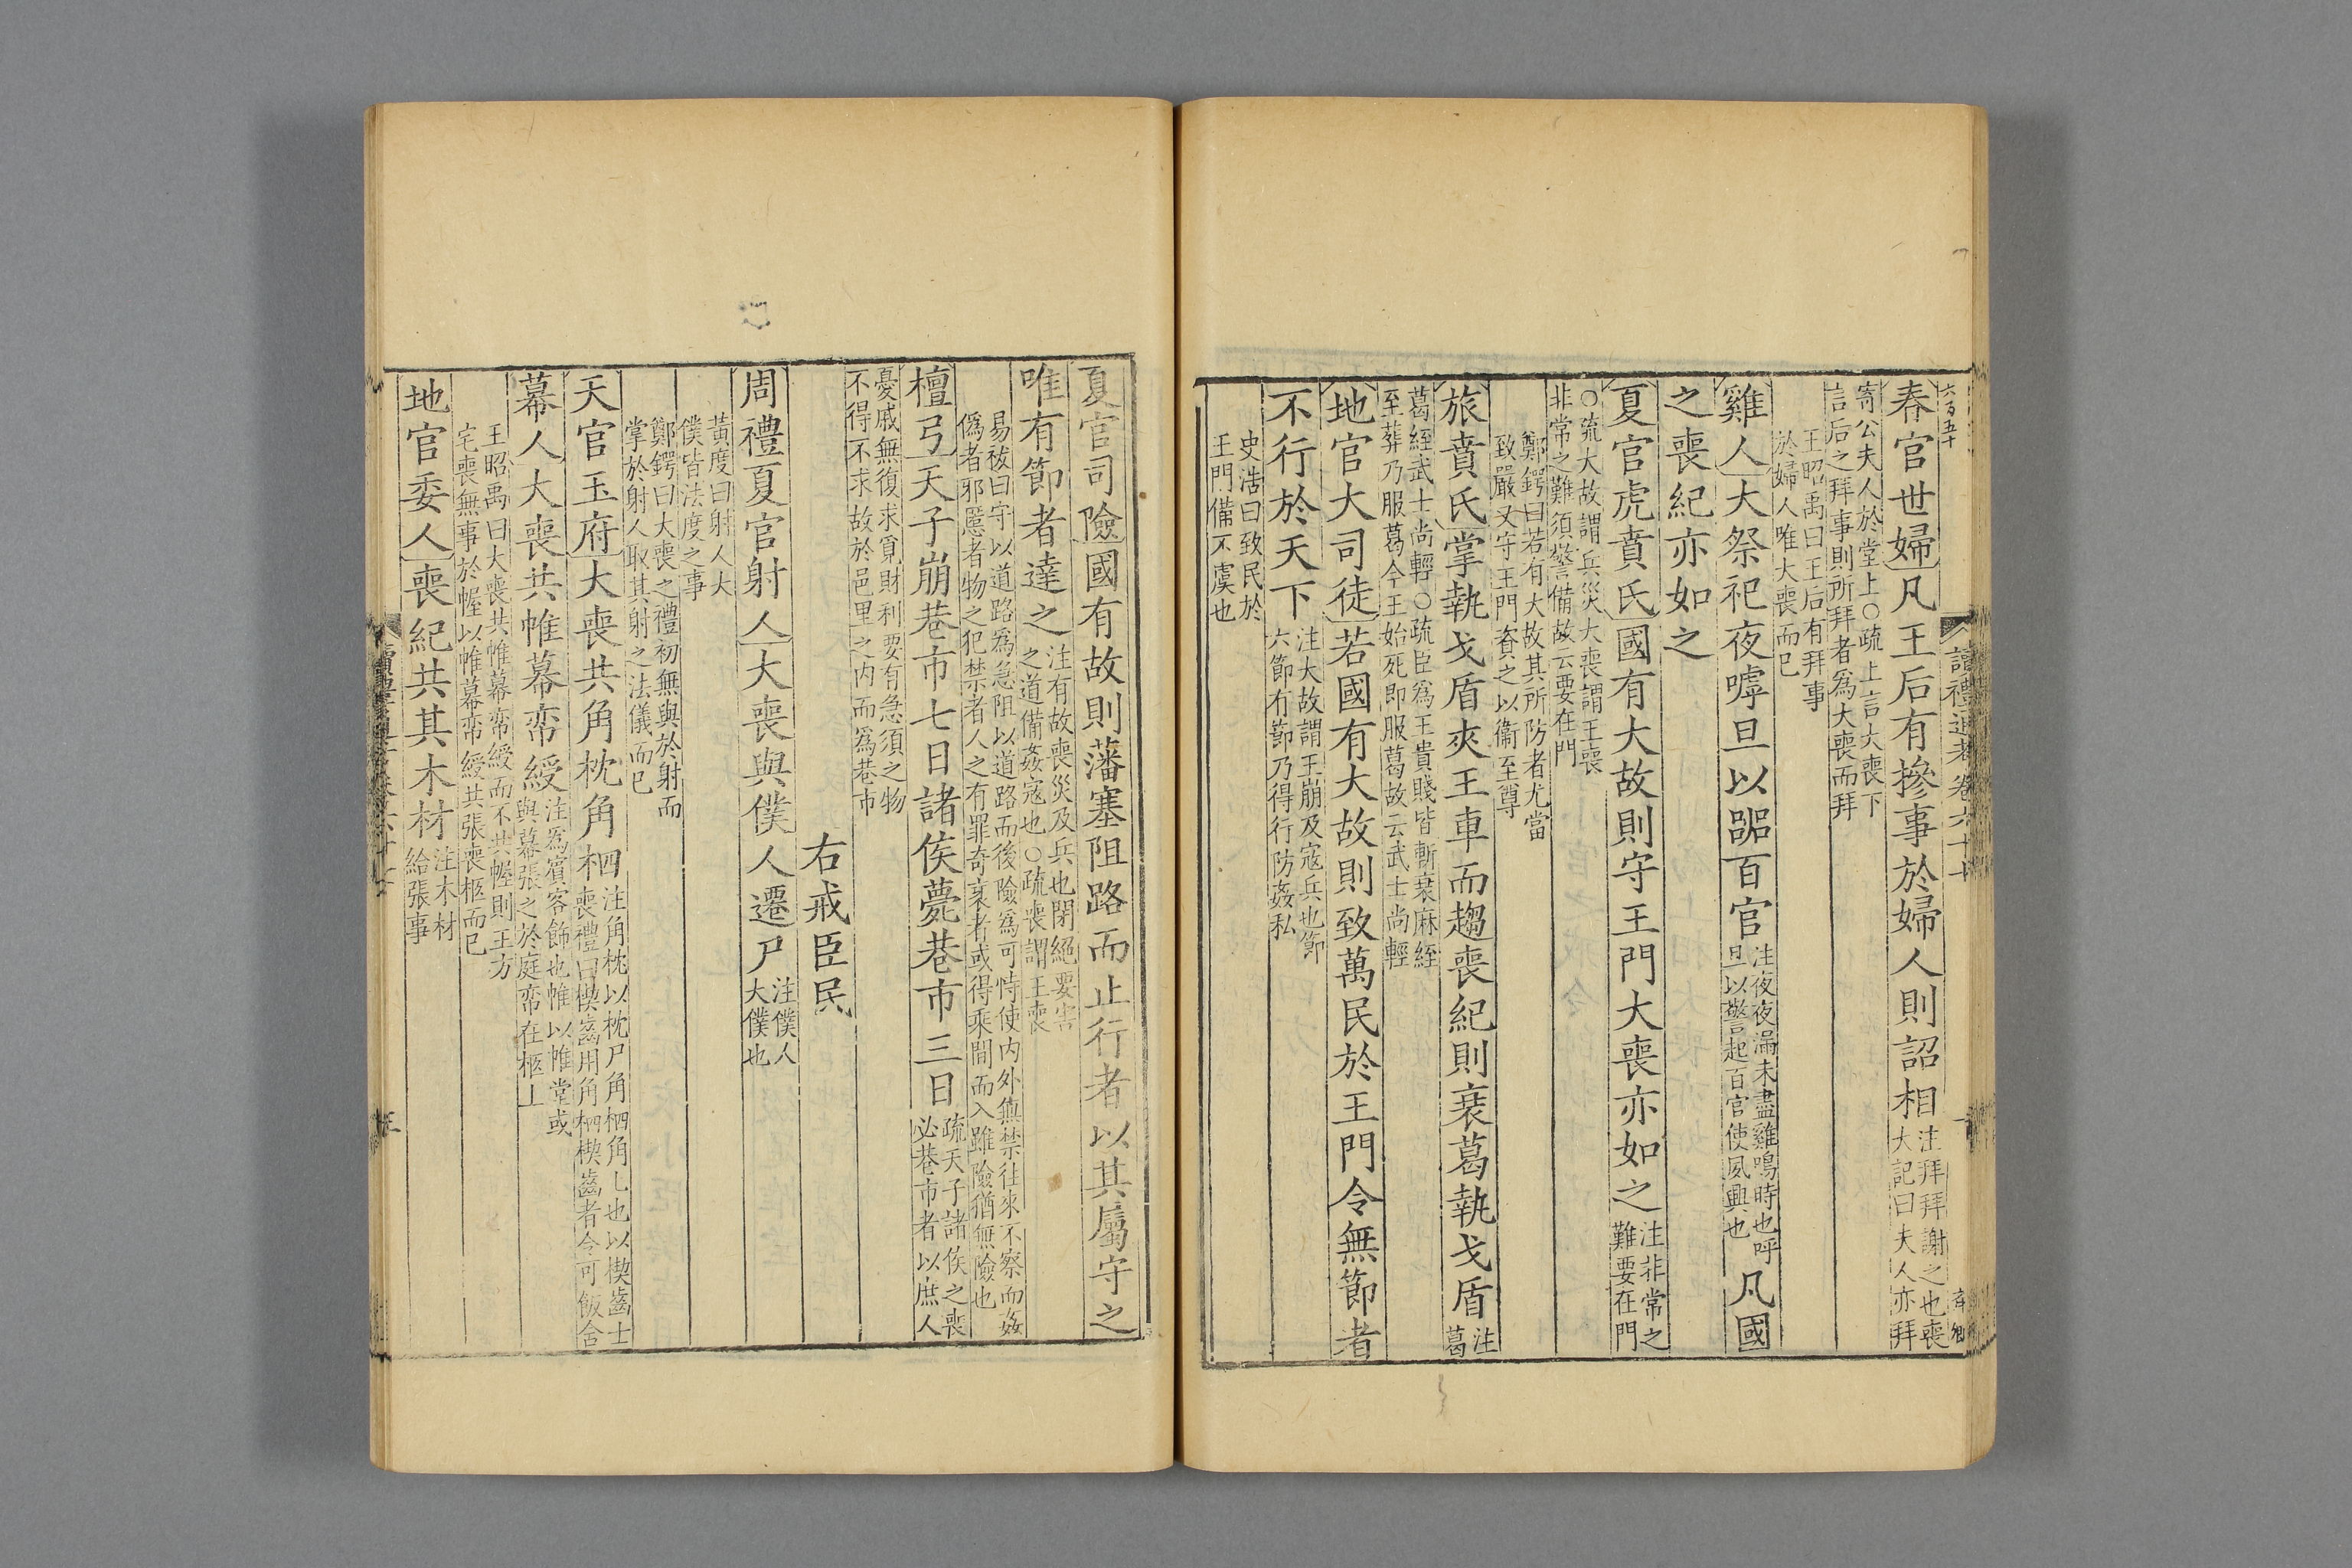 六百五十
讀禮通考卷六十七
春官世婦凡王后有㨻事於婦人則詔相注拜拜謝之也喪大記曰夫人亦拜
寄公夫人於堂上○疏上言大喪下言后之拜事則所拜者爲大喪而拜
王昭禹曰王后有拜事於婦人唯大喪而已
雞人大祭祀夜嘑旦以嘂百官注夜夜漏未盡雞鳴時也呼旦以警起百官使夙興也凡國
之喪紀亦如之
夏官虎賁氏國有大故則守王門大喪亦如之注非常之難要在門
○疏大故謂兵災大喪謂王喪非常之難須警備故云要在門
鄭鍔曰若有大故其所防者尤當致嚴又守王門賁之以衞至尊
旅賁氏掌執戈盾夾王車而趨喪紀則衰葛執戈盾注葛
葛絰武士尚輕○疏臣爲王貴賤皆斬衰麻絰至葬乃服葛今王始死即服葛故云武士尚輕
地官大司徒若國有大故則致萬民於王門令無節者
不行於天下注大故謂王崩及寇兵也節六節有節乃得行防姦私
史浩曰致民於王門備不虞也
夏官司險國有故則藩塞阻路而止行者以其屬守之
唯有節者達之注有故喪災及兵也閉絕要害之道備姦寇也○疏喪謂王喪
易祓曰守以道路爲急阻以道路而後險爲可恃使内外無禁往來不察而姦僞者邪慝者物之犯禁者人之有罪奇衺者或得乘間而入雖險猶無險也
檀弓天子崩巷市七日諸侯薨巷市三日疏天子諸侯之喪必巷市者以庶人
憂戚無復求覓財利要有急須之物不得不求故於邑里之内而爲巷市
右戒臣民
周禮夏官射人大喪與僕人遷尸注僕人大僕也
黃度曰射人大僕皆法度之事
鄭鍔曰大喪之禮初無與於射而掌於射人取其射之法儀而已
天官玉府大喪共角枕角柶注角枕以枕尸角柶角匕也以楔齒士喪禮曰楔齒用角柶楔齒者令可飯含
幕人大喪共帷幕帟綬注爲賓客飾也帷以帷堂或與幕張之於庭帟在柩上
王昭禹曰大喪共帷幕帟綬而不共幄則王方宅喪無事於幄以帷幕帟綬共張喪柩而已
地官委人喪紀共其木材注木材給張事